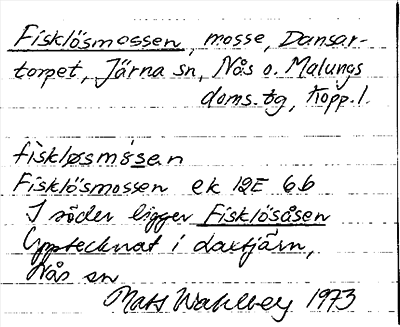 Fisklösmossen, mosse, Dansar-
torpet, Järna sn, Nås o. Malungs
doms.tg, Kopp.l.
fìskløsmósen
Fisklösmossen ek 12E 6b
I söder ligger Fisklösåsen
Upptecknat i Laxtjärn,
Nås sn
Mats Wahlberg 1973